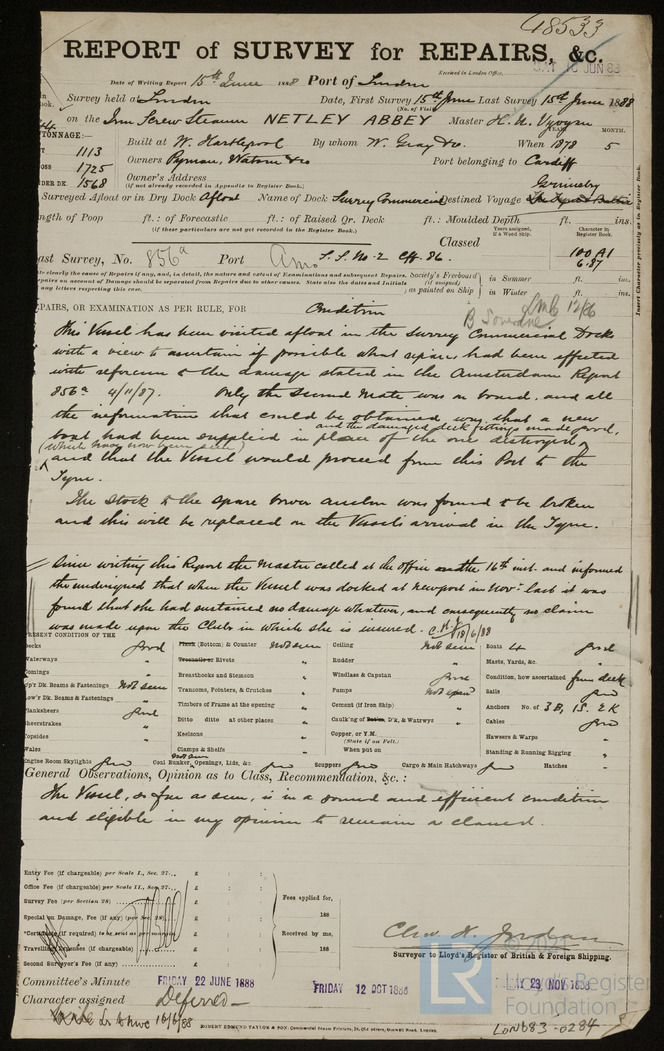 48533
REPORT of SURVEY for REPAIRS, &c.
Date of Writing Report 15th June 1888 Port of London
Received in London Office,
JUN 88
Survey held at London Date, First Survey 15th June Last Survey 15th June 1888
(No. of Visits
on the Iron Screw Steamer NETLEY ABBEY Master H. N. Vyvyan
TONNAGE:—
YEARS MONTH.
1113 Built at W. Hartlepool By whom W. Gray & Co. When 1878 5
1725 Owners Pyman, Watson & Co Port belonging to Cardiff
DER DK. 1568 Owner's Address
(if not already recorded in Appendix to Register Book.)
Grimsby
Surveyed Afloat or in Dry Dock Afloat Name of Dock Surrey Commercial Destined Voyage
ngth of Poop ft.: of Forecastle ft.: of Raised Qr. Deck ft.: Moulded Depth ft. ins.
(if these particulars are not yet recorded in the Register Book.)
Years assigned, if a Wood Ship.
Character in Register Book.
Insert Character precisely as in Register Book.
Classed
100 A1
6.87
ast Survey, No. 856a Port Ams S.S. No. 2 Cff. 86.
te clearly the cause of Repairs if any, and, in detail, the nature and extent of Examinations and subsequent Repairs.
epairs on account of Damage should be separated from Repairs due to other causes. State also the dates and Initials
any letters respecting this case.
Society's Freeboard (if assigned) as painted on Ship
in Summer ft. in.
in Winter ft. ins.
LMC 12/86
EPAIRS, OR EXAMINATION AS PER RULE, FOR Condition
This Vessel has been visited afloat in the Surrey Commercial Docks
with a view to ascertain if possible what repairs had been effected
with reference to the damage stated in the Amsterdam Report
856a 4/11/87. Only the Second Mate was on board, and all
the information that could be obtained was, that a new
and the damaged deck fittings made good,
boat had been supplied in place of the one destroyed,
(which have now been seen)
and that the Vessel would proceed from this Port to the
Tyne.
The Stock to the spare bower anchor was found to be broken
and this will be replaced on the Vessels arrival in the Tyne.
Since writing this Report the Master called at the office on the 16th inst. and informed
the undersigned that when the Vessel was docked at Newport in Novr. last it was
found that she had sustained no damage whatever, and consequently no claim
was made upon the Clubs in which she is insured. C.H.J. 18/6/88
PRESENT CONDITION OF THE
Decks Good Plank (Bottom) & Counter Not seen Ceiling Not seen Boats 4 Good
Waterways " Treenails or Rivets " Rudder " Masts, Yards, &c. "
omings " Breasthooks and Stemson " Windlass & Capstan Good Condition, how ascertained from deck
Up'r Dk. Beams & Fastenings Not seen Transoms, Pointers, & Crutches " Pumps Not open Sails Good
ow'r Dk. Beams & Fastenings " Timbers of Frame at the opening " Cement (if Iron Ship) " Anchors No. of 3 B, 1S, 2K
lanksheers Good Ditto ditto at other places " Caulk'g of Bottom, D'k, & Watrwys " Cables Good
heerstrakes " Keelsons " Copper, or Y.M. Hawsers & Warps "
opsides " Clamps & Shelfs " (State if on Felt.) Standing & Running Rigging "
Wales " When put on
Engine Room Skylights Good Coal Bunker Openings, Lids, &c. Good Scuppers Good Cargo & Main Hatchways Good Hatches "
General Observations, Opinion as to Class, Recommendation, &c.:
The Vessel, so far as seen, is in a sound and efficient condition
and eligible in my opinion to remain as classed.
Entry Fee (if chargeable) per Scale I., Sec. 27... £ : :
Office Fee (if chargeable) per Scale II., Sec. 27... £ : :
Survey Fee (per Section 28) £ : :
Special or Damage, Fee (if any) (per Sec. 28). £ : :
*Certificate (if required) to be sent as per margin
Travelling Expenses (if chargeable) £ : :
Second Surveyor's Fee (if any) £ : :
Fees applied for,
188
Received by me,
188
Chas. H. Jordan
Surveyor to Lloyd's Register of British & Foreign Shipping.
Committee's Minute FRIDAY 22 JUNE 1888 FRIDAY 12 OCT 1888 23 NOV 1888
Character assigned Deferred—
16/6/88
ROBERT EDMUND TAYLOR & SON, Commercial Steam Printers, 19, Old street, Goswell Road, London.
LR
© 2021
Lloyd's Register
Foundation
LON683-0284